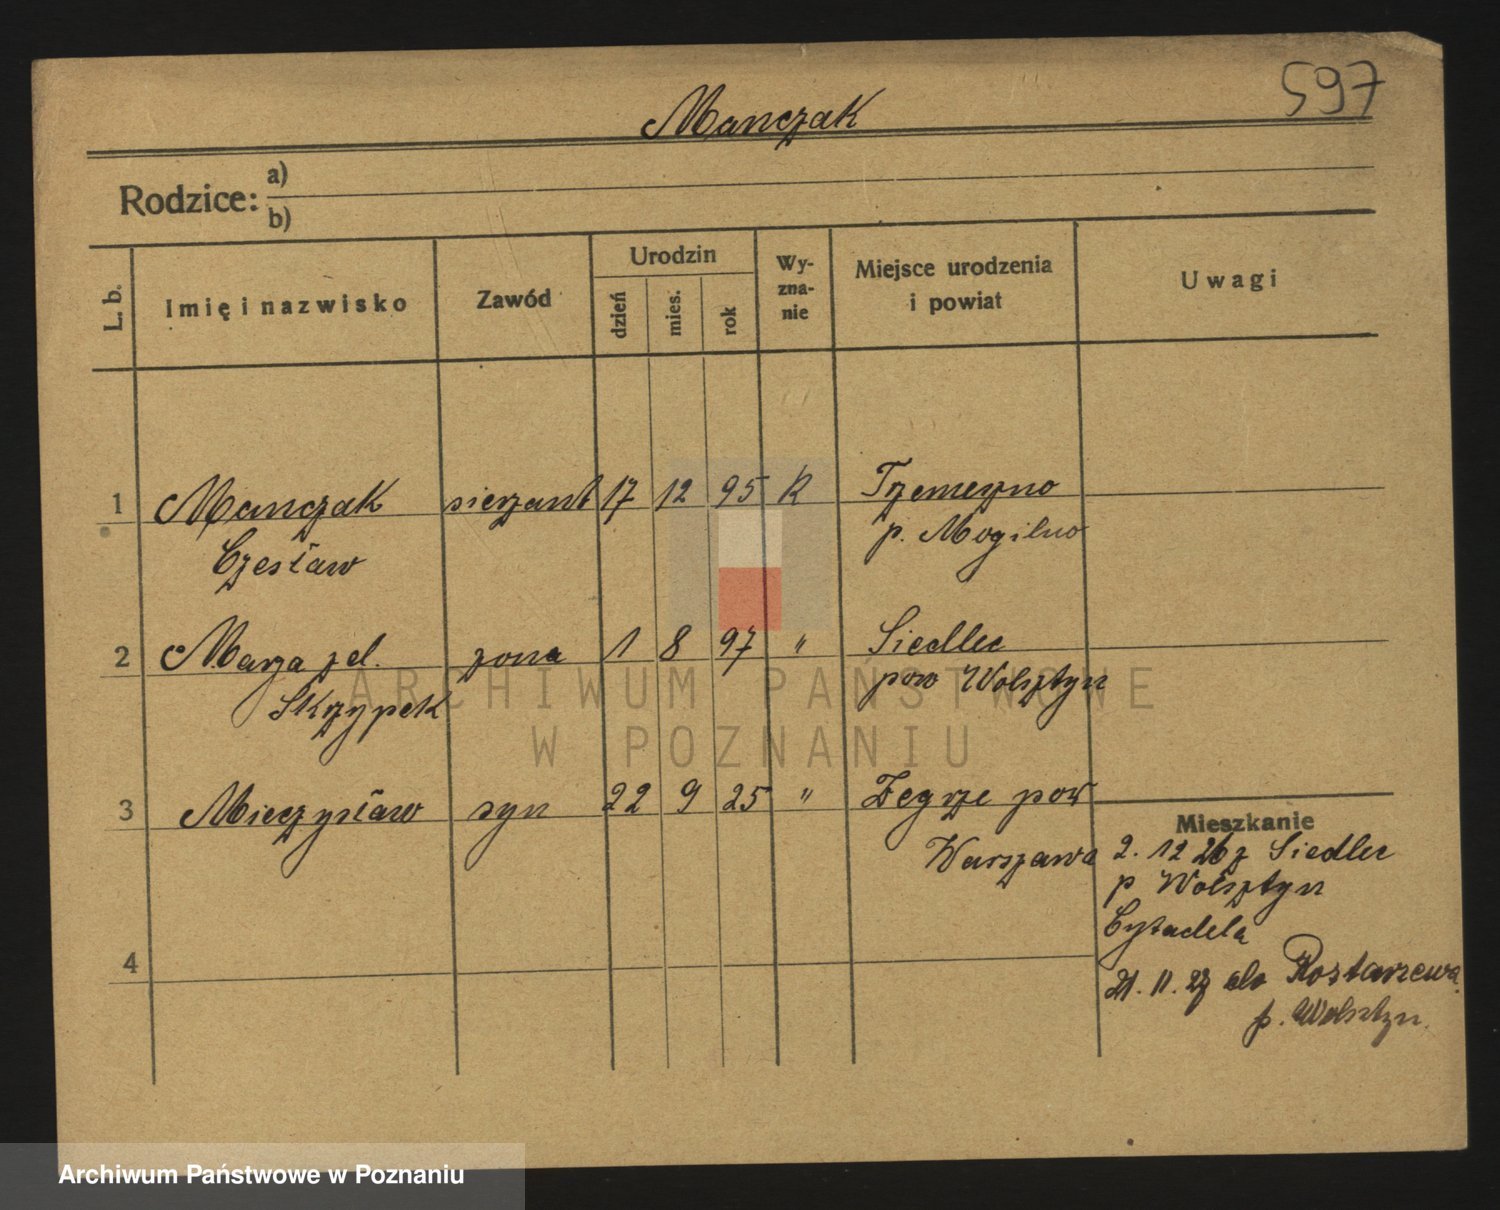 597
Manczak
Rodzice: a)
b)
L. b.
Imię i nazwisko
Zawód
Urodzin
dzień
mies.
rok
Wy-
zna-
nie
Miejsce urodzenia
i powiat
Uwagi
1 Manczak sierzant 17 12 95 R Trzemeszno
Czesław p. Mogilno
2 Marja zel. zona 1 8 97 " Siedlec
Skrzypek pow Wolsztyn
3 Mieczysław syn 22 9 25 " Zegrze pow
Warszawa
Mieszkanie
2. 12 26 z Siedlec
p Wolsztyn
Cytadela
4
21. 11. 27 do Rostarzewa
p. Wolsztyn.
ARCHIWUM PAŃSTWOWE
W POZNANIU
Archiwum Państwowe w Poznaniu